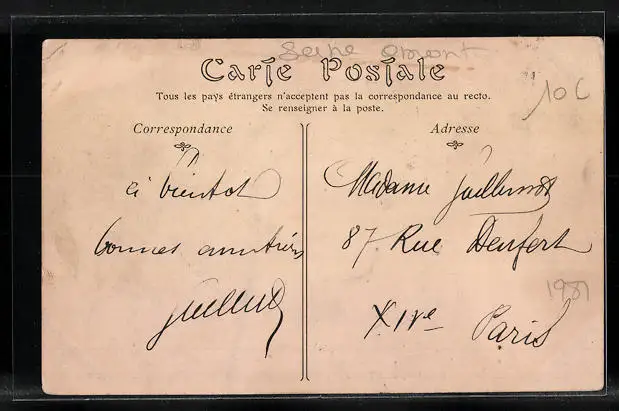 Carte Postale
Tous les pays étrangers n'acceptent pas la correspondance au recto.
Se renseigner à la poste.
10 C
Correspondance
à bientot
bonnes amitiés
Adresse
Madame
87 Rue Denfert
XIVe Paris